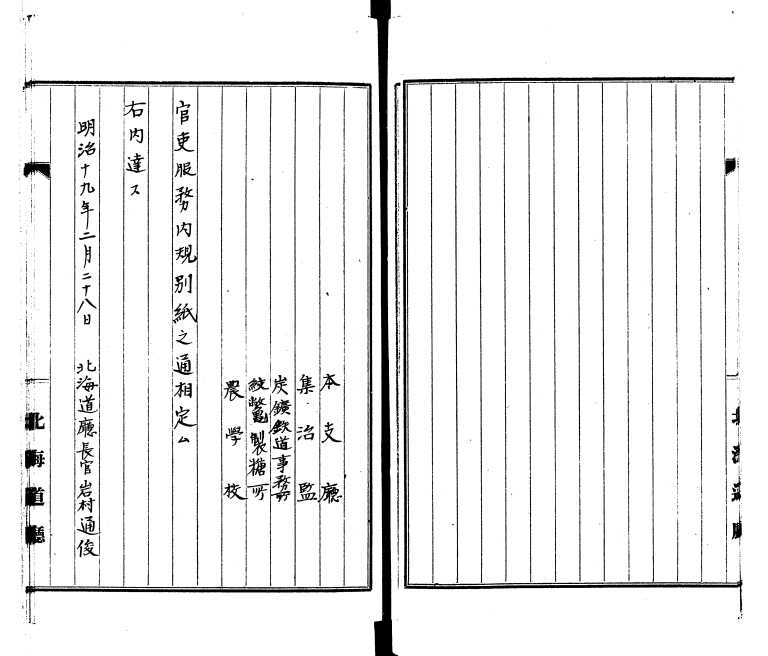 本支廳
集治監
炭鑛鉄道事務所
紋鼈製糖所
農學校
官吏服務内規別紙之通相定ム
右内達ス
明治十九年二月二十八日 北海道廳長官岩村通俊
北海道廳